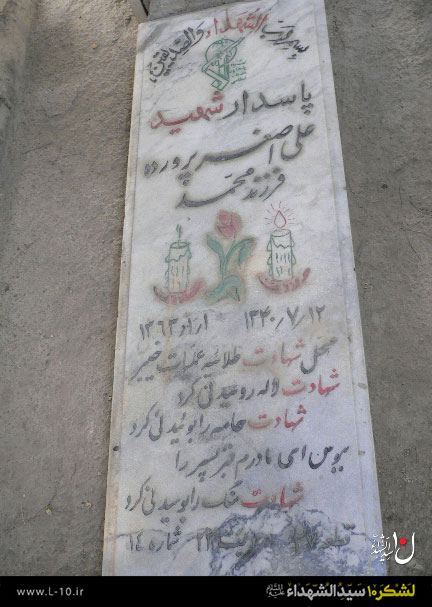 بسم رب الشهداء والصدیقین
پاسدار شهید
علی اصغر پرورده
فرزند محمد
۱۳۴۰٫۷٫۱۲ ۱۳۶۳
محل شهادت طلائیه عملیات خیبر
شهادت لاله رو عیدنی کرد
شهادت جامه را بوئیدنی کرد
ببوس ای مادرم قبر پسر را
شهادت سنگ را بوسیدنی کرد
قطعه شماره ۱۴
لشکر۱۰سیدالشهداء
www.L-10.ir